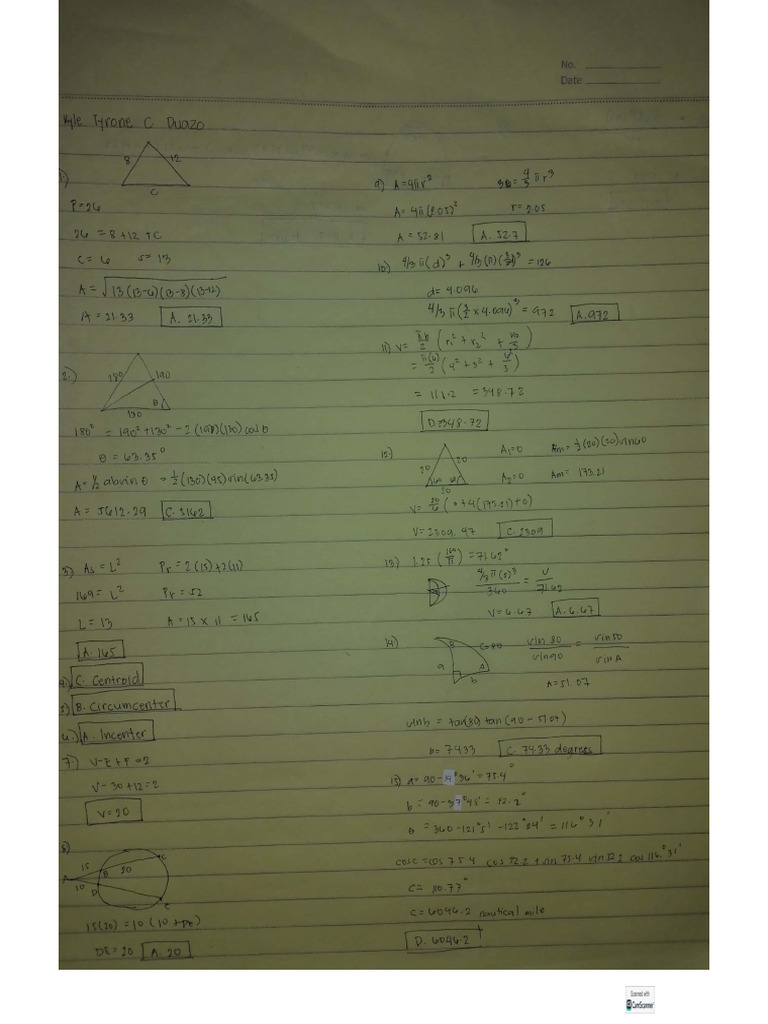 No.
Date
Kyle Tyrone C Duazo
1.)
8
12
C
P=26
26 = 8 + 12 + C
C = 6 S = 13
A = √13(13-6)(13-8)(13-12)
A = 21.33 A. 21.33
2.)
180
190
θ
130
180² = 190² + 130² - 2(190)(130) cosθ
θ = 63.35°
A = 1/2 absin θ = 1/2 (130)(95) sin(63.35)
A = 5612.29
3) As = L² Pr = 2(15)+2(11)
169 = L² Pr = 52
L = 13 A = 15 x 11 = 165
A. 165
4.) C. Centroid
5) B. Circumcenter
6.) A. Incenter
7.) V-E+F=2
V-30+12=2
V=20
8)
15
20
A
B
10
D
C
E
15(20) = 10(10+DE)
DE = 20 A. 20
9) A=4πr² 36 = 4/3 πr³
A = 4π(2.05)² r = 2.05
A = 52.81 A. 52.7
10) 4/3 π(d)³ + 4/3(π)(3/2d)³ = 126
d = 4.096
4/3 π(3/2 x 4.096)³ = 972 A. 972
= 111.2 = 348.72
D. 348.72
12)
20
20
20
A1=0 Am = 1/2(20)(20)sin60
A2=0 Am = 173.21
V = 2309.47 C. 2309
13) 1.25 (180/π) = 71.62°
4/3 π(2)³ / 360 = V / 71.62
V = 6.67 A. 6.67
14)
B
C=80
a
A
b
sin 80 / sin 90 = sin 50 / sin A
A = 51.07
sinb = tan(80) tan(90 - 51.07)
b = 74.33 C. 74.33 degrees
15) a = 90 - 14°36' = 75.4°
θ = 360 - 121°5' - 122°24' = 116°31'
cosc = cos 75.4 cos 52.2 + sin 75.4 sin 52.2 cos 116°31'
C = 6046.2 nautical mile
D. 6046.2
Scanned with
CamScanner